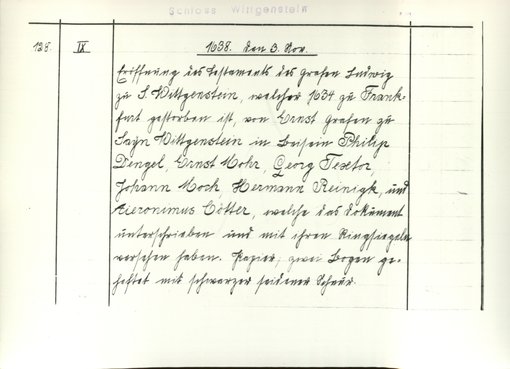 Schloss Wittgenstein
128. IX 1638. den 3. Nov.
Eröffnung des Testaments des Grafen Ludwig
zu S. Wittgenstein, welcher 1634 zu Frank-
furt gestorben ist, von Ernst Grafen zu
Sayn Wittgenstein in Beisein Philip
Dengel, Ernst Mohr, Georg Textor,
Johann Moch Hermann Reinigk, und
Hieronimus Cötter, welche das Dokument
unterschrieben und mit ihren Ringsiegeln
versehen haben. Papier, zwei Bogen ge-
heftet mit schwarzer seidener Schnur.